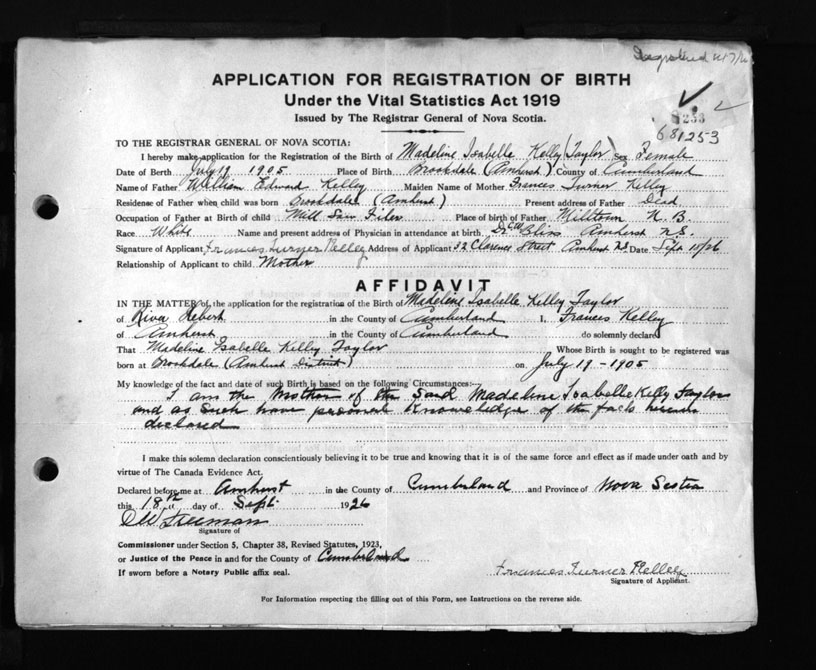 APPLICATION FOR REGISTRATION OF BIRTH
Under the Vital Statistics Act 1919
Issued by The Registrar General of Nova Scotia.
681253
TO THE REGISTRAR GENERAL OF NOVA SCOTIA:
I hereby make application for the Registration of the Birth of Madeline Isabelle Kelly (Taylor) Sex Female
Date of Birth July 19 1905 Place of Birth Brookdale (Amherst) County of Cumberland
Name of Father William Edward Kelley Maiden Name of Mother Frances Turner Kelley
Residence of Father when child was born Brookdale (Amherst) Present address of Father Dead
Occupation of Father at Birth of child Mill Saw Filer Place of birth of Father Milltown N. B.
Race White Name and present address of Physician in attendance at birth Dr Bliss Amherst N.S.
Signature of Applicant Frances Turner Kelley Address of Applicant 32 Clarence Street Amherst N.S. Date Sept 18/26
Relationship of Applicant to child Mother
AFFIDAVIT
IN THE MATTER of the application for the registration of the Birth of Madeline Isabelle Kelley Taylor
of River Hebert in the County of Cumberland I, Frances Kelley
of Amherst in the County of Cumberland do solemnly declare
That Madeline Isabelle Kelley Taylor Whose Birth is sought to be registered was
born at Brookdale (Amherst District) on July 19 - 1905
My knowledge of the fact and date of such Birth is based on the following Circumstances:—
I am the Mother of the Said Madeline Isabelle Kelly Taylor
and as such have personal knowledge of the facts herein
declared
I make this solemn declaration conscientiously believing it to be true and knowing that it is of the same force and effect as if made under oath and by
virtue of The Canada Evidence Act.
Declared before me at Amherst in the County of Cumberland and Province of Nova Scotia
this 18th day of Sept. 1926
Freeman
Signature of
Commissioner under Section 5, Chapter 38, Revised Statutes, 1923,
or Justice of the Peace in and for the County of Cumberland
If sworn before a Notary Public affix seal.
Frances Turner Kelley
Signature of Applicant.
For Information respecting the filling out of this Form, see Instructions on the reverse side.